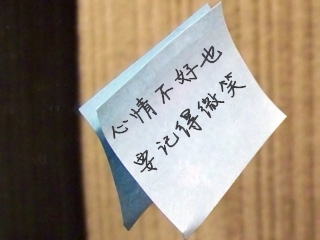 心情不好也
要记得微笑